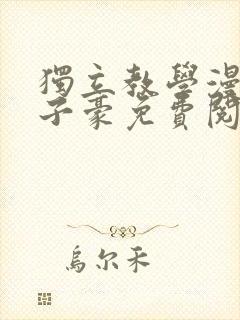 獨立教學漫
子豪免費閱
烏尔禾